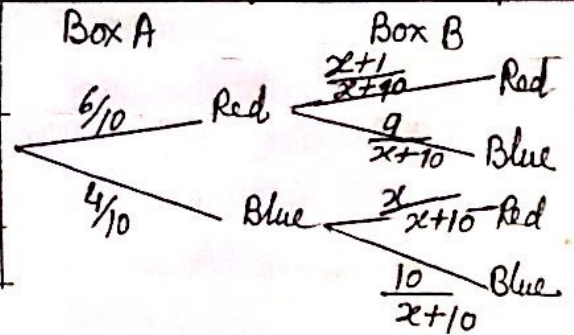 Box A Box B
x+1
x+10 Red
6/10 Red
9
x+10 Blue
x
4/10 Blue x+10 Red
10
x+10 Blue